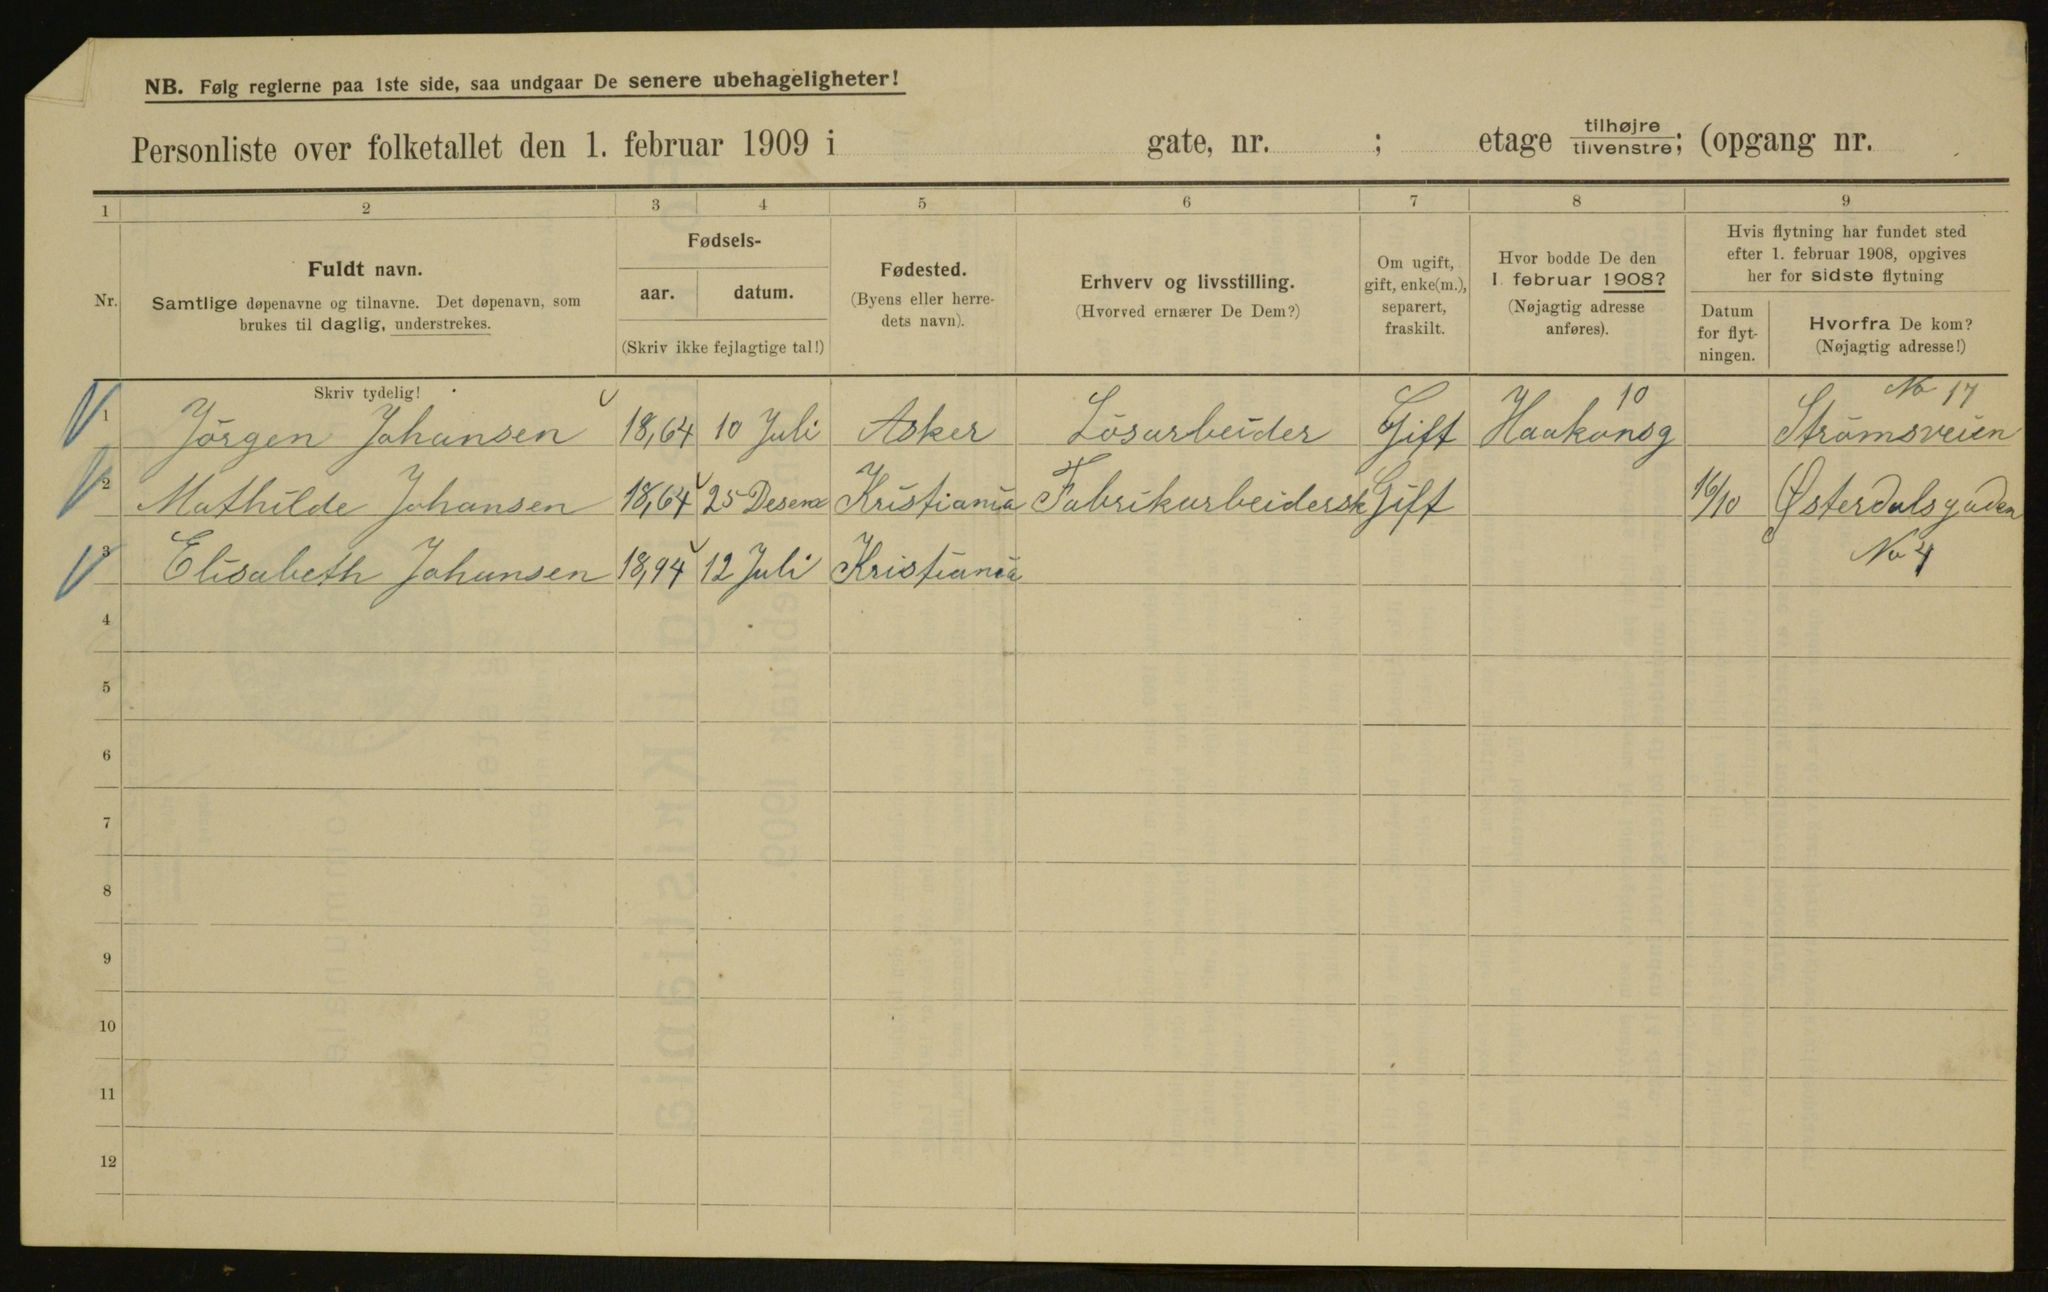 NB. Følg reglerne paa 1ste side, saa undgaar De senere ubehageligheter!
Personliste over folketallet den 1. februar 1909 i gate, nr. ; etage tilhøjre tilvenstre; (opgang nr.
1 2 3 4 5 6 7 8 9
Nr.
Fuldt navn.
Samtlige døpenavne og tilnavne. Det døpenavn, som
brukes til daglig, understrekes.
Skriv tydelig!
Fødsels-
aar. datum.
(Skriv ikke fejlagtige tal!)
Fødested.
(Byens eller herre-
dets navn).
Erhverv og livsstilling.
(Hvorved ernærer De Dem?)
Om ugift,
gift, enke(m.),
separert,
fraskilt.
Hvor bodde De den
1. februar 1908?
(Nøjagtig adresse
anføres).
Hvis flytning har fundet sted
efter 1. februar 1908, opgives
her for sidste flytning
Datum
for flyt-
ningen.
Hvorfra De kom?
(Nøjagtig adresse!)
10 No 17
1 Jörgen Johansen 18,64 10 Juli Asker Lösarbeider Gift Haakonsg Strömsveien
2 Mathilde Johansen 18,64 25 Desem Kristiania Fabrikarbeidersk Gift 16/10 Østerdalsgaden
3 Elisabeth Johansen 18,94 12 Juli Kristiania No 4
4
5
6
7
8
9
10
11
12